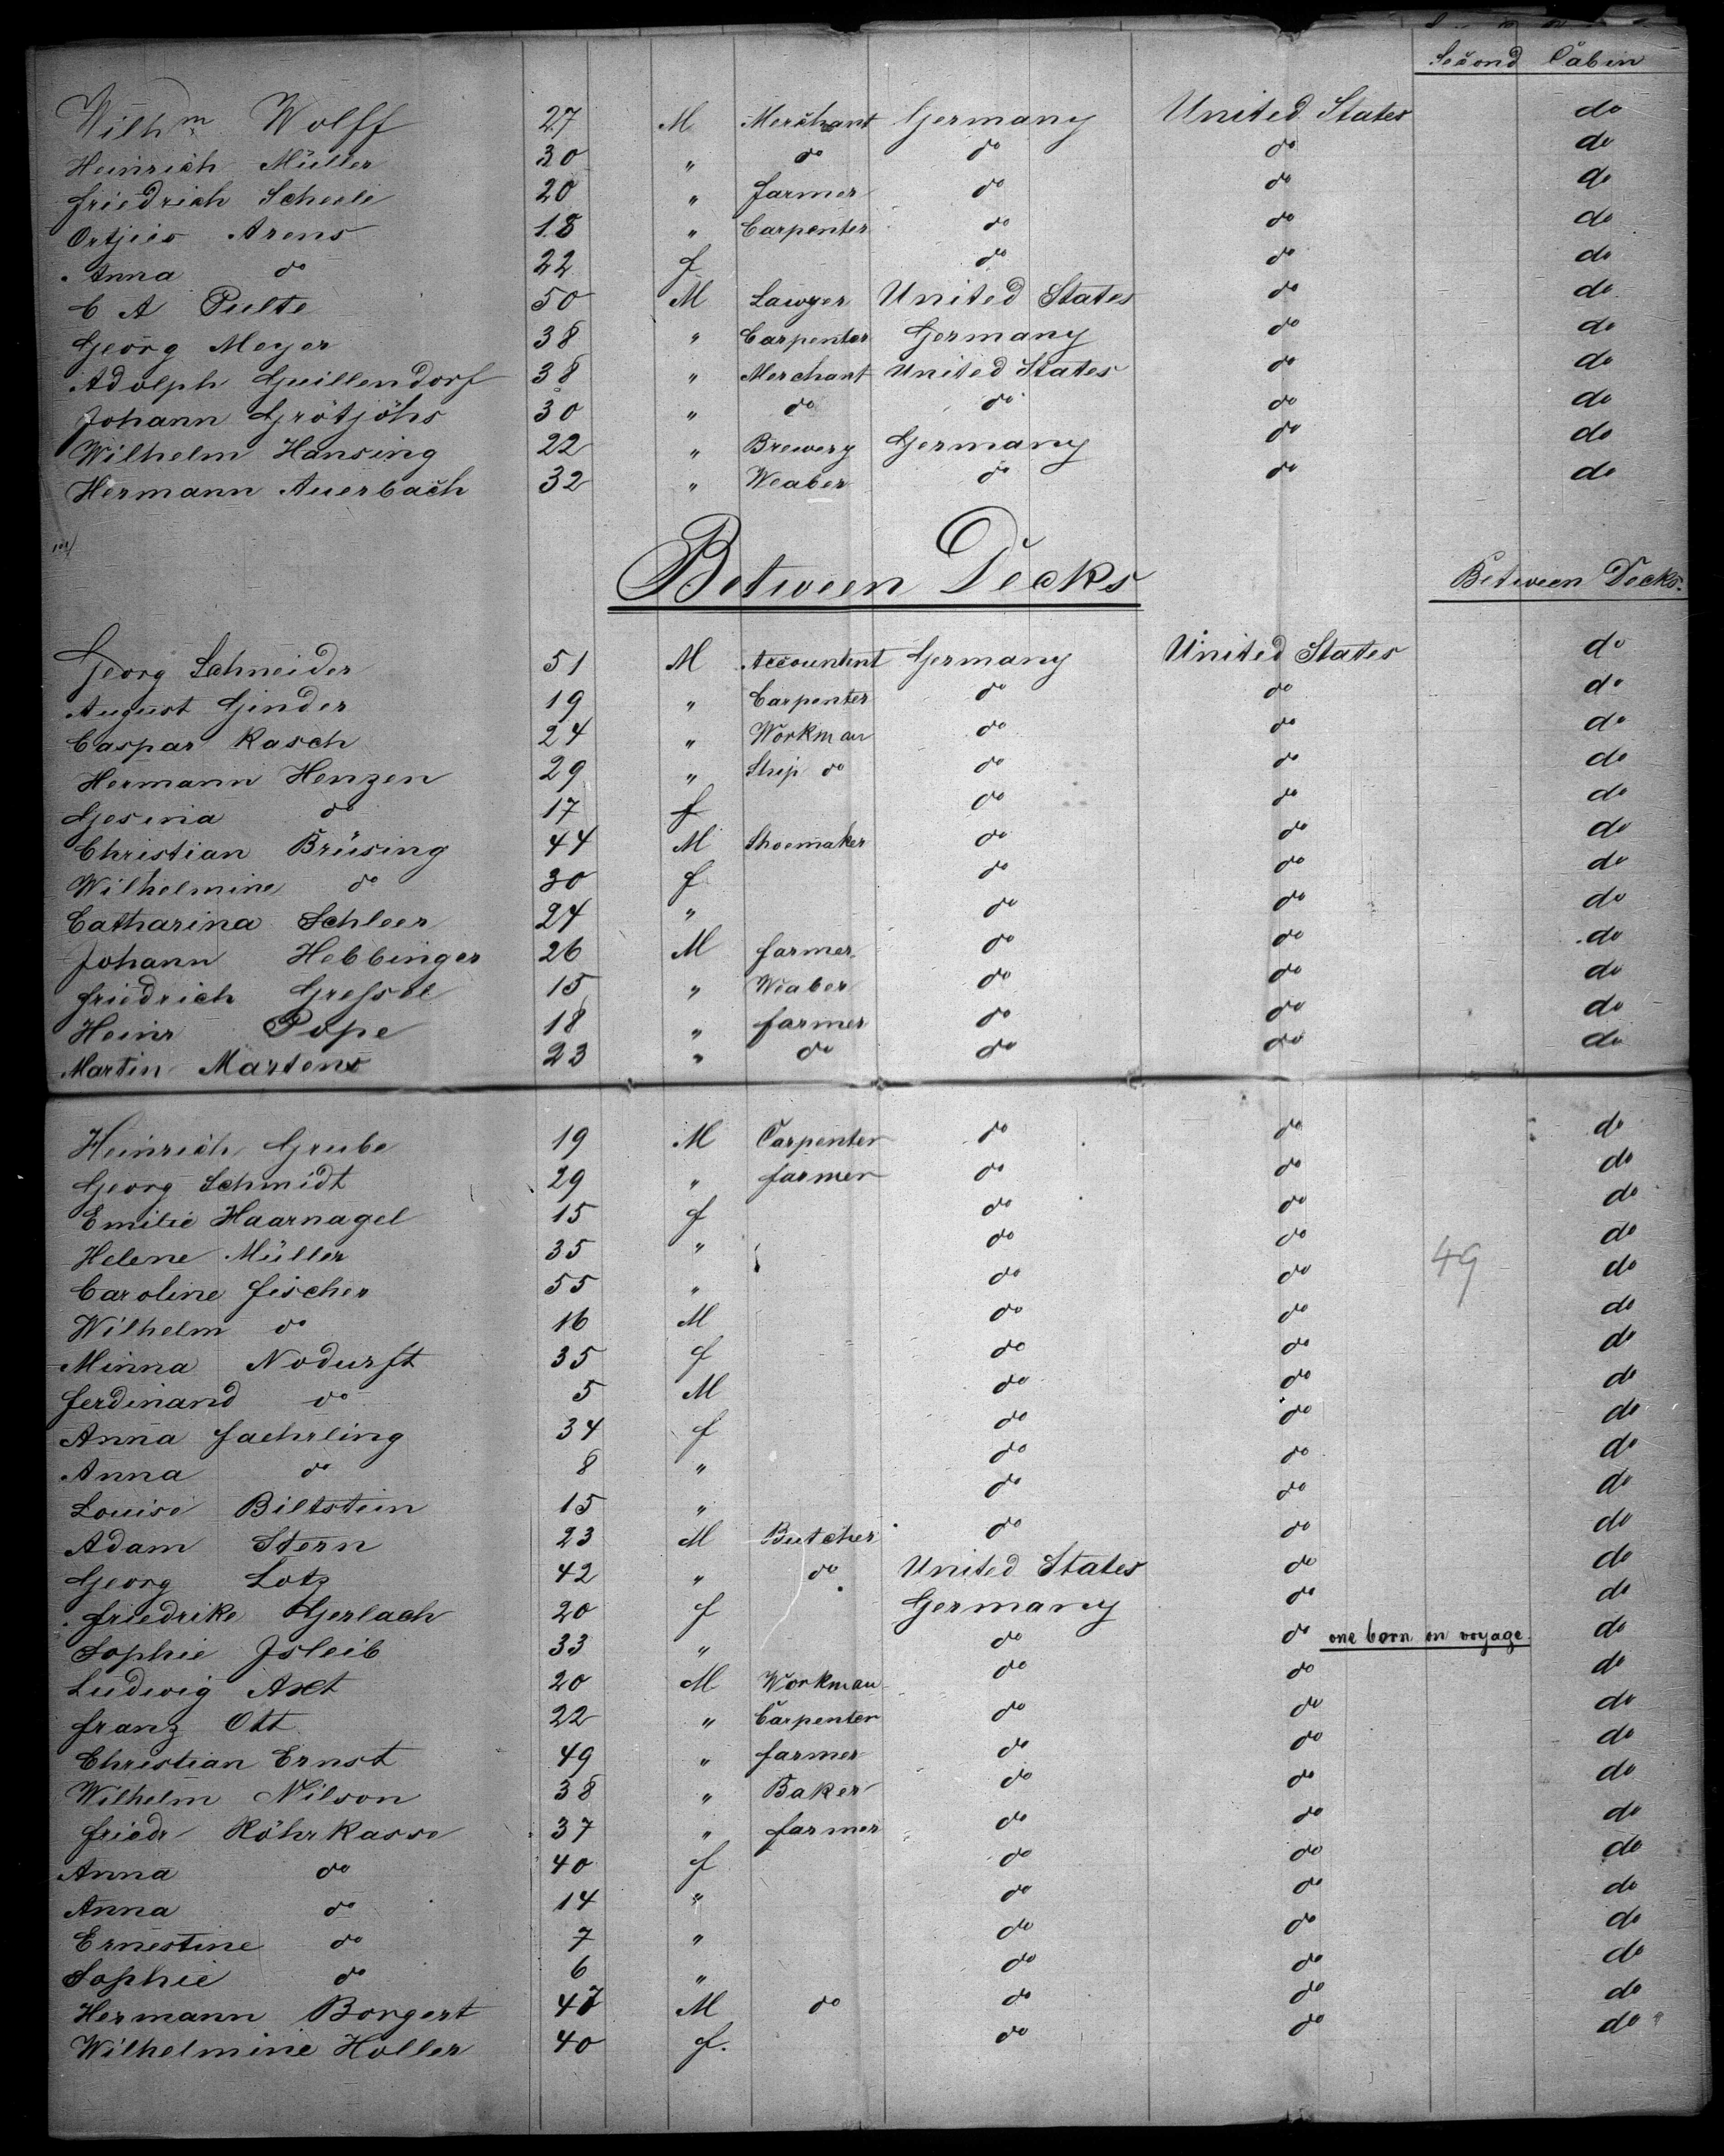 Second Cabin
Wilhm Wolff 27 M Merchant Germany United States do
Heinrich Müller 30 " do do do do
Friedrich Scheele 20 " farmer do do do
Ortjies Arens 18 " Carpenter do do do
Anna do 22 f do do do
C A Pulte 50 M Lawyer United States do do
Georg Meyer 38 " Carpenter Germany do do
Adolph Guillendorf 38 " Merchant United States do do
Johann Grötjöhs 30 " do do do do
Wilhelm Hansing 22 " Brewery Germany do do
Hermann Auerbach 32 " Weaber do do do
Between Decks Between Decks.
Georg Schneider 51 M Accountent Germany United States do
August Ginder 19 " Carpenter do do do
Caspar Rasch 24 " Workman do do do
Hermann Henzen 29 " Ship do do do do
Gesina do 17 f do do do
Christian Brüsing 44 M Shoemaker do do do
Wilhelmine do 30 f do do do
Catharina Schleer 24 " do do do
Johann Hebbinger 26 M farmer do do do
Friedrich Gressel 15 " Weaber do do do
Heinr Pope 18 " farmer do do do
Martin Martens 23 " do do do do
Heinrich Grube 19 M Carpenter do do do
Georg Schmidt 29 " farmer do do do
Emilie Haarnagel 15 f do do do
Helene Müller 35 " do do do
49
Caroline Fischer 55 " do do do
Wilhelm do 16 M do do do
Minna Nodurft 35 f do do do
Ferdinand do 5 M do do do
Anna Faehrling 34 f do do do
Anna do 8 " do do do
Louise Biltstein 15 " do do do
Adam Stern 23 M Butcher do do do
Georg Lotz 42 " do United States do do
Friedrike Gerlach 20 f Germany do do
Sophie Isleib 33 " do do one born on voyage. do
Ludwig Axt 20 M Workman do do do
Franz Ott 22 " Carpenter do do do
Christian Ernst 49 " farmer do do do
Wilhelm Nilson 38 " Baker do do do
Friedr Röhrkasse 37 " farmer do do do
Anna do 40 f do do do
Anna do 14 " do do do
Ernestine do 7 " do do do
Sophie do 6 " do do do
Hermann Borgert 47 M do do do do
Wilhelmine Holler 40 f. do do do